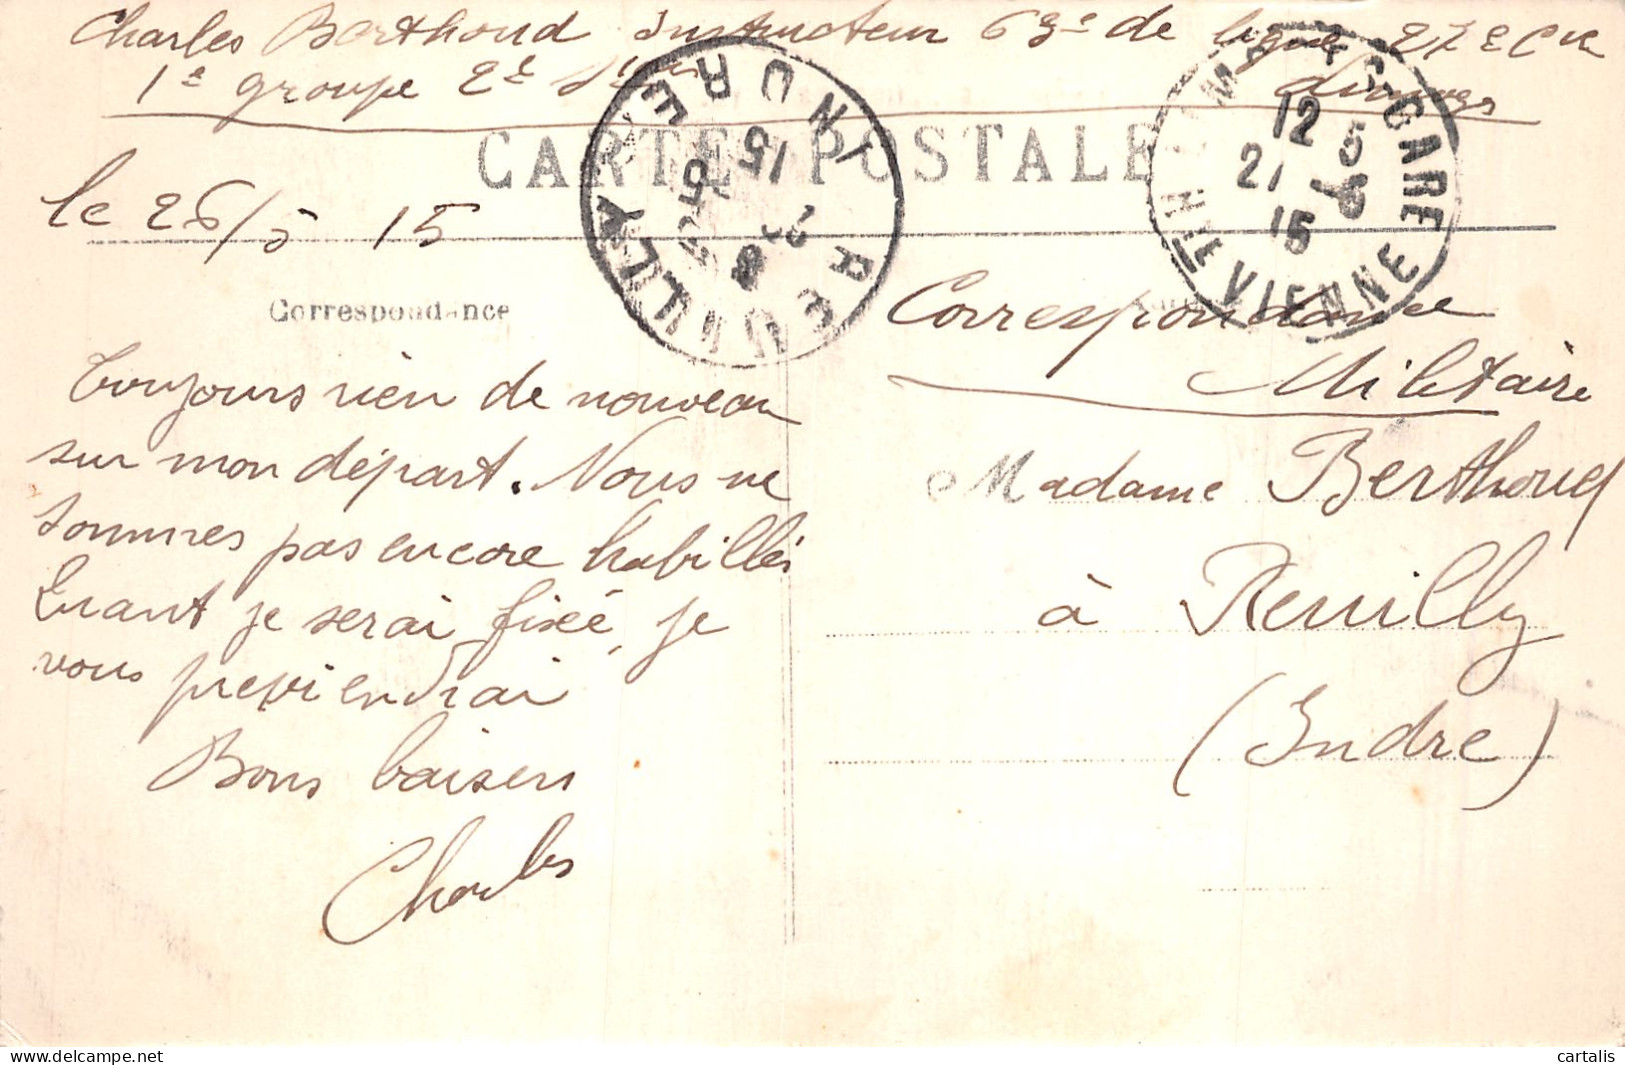 Charles Berthoud Instructeur 63e de ligne 27e Cie
1e groupe 2e Limoges
CARTE POSTALE
REUILLY INDRE
15 15
LIMOGES-GARE
12 5
21 - 6
15
Hte VIENNE
le 26/5 15
Correspondance
Correspondance
Militaire
Toujours rien de nouveau
sur mon départ. Nous ne
sommes pas encore habillés
Quant je serai fixée, je
vous previendrai
Bons baisers
Charles
Madame Berthoud
à Reuilly
(Indre)
cartalis